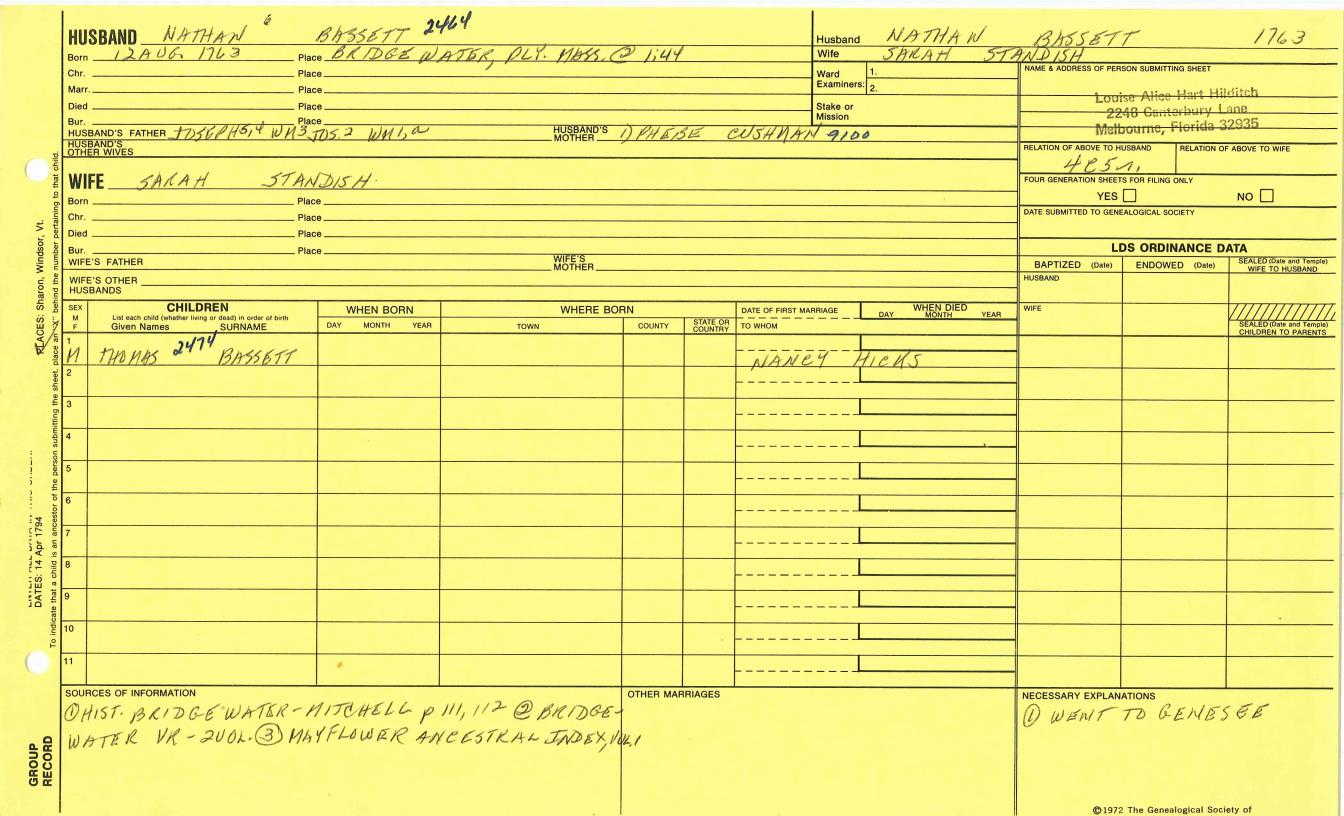 HUSBAND NATHAN 6 BASSETT 2464
Born 12 AUG. 1763 Place BRIDGEWATER, PLY. MASS. @ 1:44
Chr. Place
Marr. Place
Died Place
Bur. Place
HUSBAND'S FATHER JOSEPH 5,4 WM 3 JOS. 2 WM 1, a HUSBAND'S MOTHER PHEBE CUSHMAN 9100
HUSBAND'S OTHER WIVES
Husband NATHAN BASSETT 1763
Wife SARAH STANDISH
Ward Examiners: 1.
2.
Stake or Mission
NAME & ADDRESS OF PERSON SUBMITTING SHEET
Louise Alice Hart Hilditch
2248 Canterbury Lane
Melbourne, Florida 32935
RELATION OF ABOVE TO HUSBAND RELATION OF ABOVE TO WIFE
FOUR GENERATION SHEETS FOR FILING ONLY
YES NO
DATE SUBMITTED TO GENEALOGICAL SOCIETY
WIFE SARAH STANDISH
Born Place
Chr. Place
Died Place
Bur. Place
WIFE'S FATHER WIFE'S MOTHER
WIFE'S OTHER HUSBANDS
LDS ORDINANCE DATA
BAPTIZED (Date) ENDOWED (Date) SEALED (Date and Temple) WIFE TO HUSBAND
HUSBAND
WIFE
SEALED (Date and Temple) CHILDREN TO PARENTS
SEX M F
CHILDREN
List each child (whether living or dead) in order of birth
Given Names SURNAME
WHEN BORN
DAY MONTH YEAR
WHERE BORN
TOWN COUNTY STATE OR COUNTRY
DATE OF FIRST MARRIAGE
TO WHOM
WHEN DIED
DAY MONTH YEAR
1
M THOMAS 2474 BASSETT NANCY HICKS
2
3
4
5
6
7
8
9
10
11
SOURCES OF INFORMATION
① HIST. BRIDGEWATER-MITCHELL p 111, 112 @ BRIDGE-
WATER VR - 2VOL. ③ MAYFLOWER ANCESTRAL INDEX, VOL. 1
OTHER MARRIAGES
NECESSARY EXPLANATIONS
① WENT TO GENESEE
©1972 The Genealogical Society of
PLACES: Sharon, Windsor, Vt.
DATES: 14 Apr 1794
To indicate that a child is an ancestor of the person submitting the sheet, place an "X" behind the number pertaining to that child.
GROUP RECORD